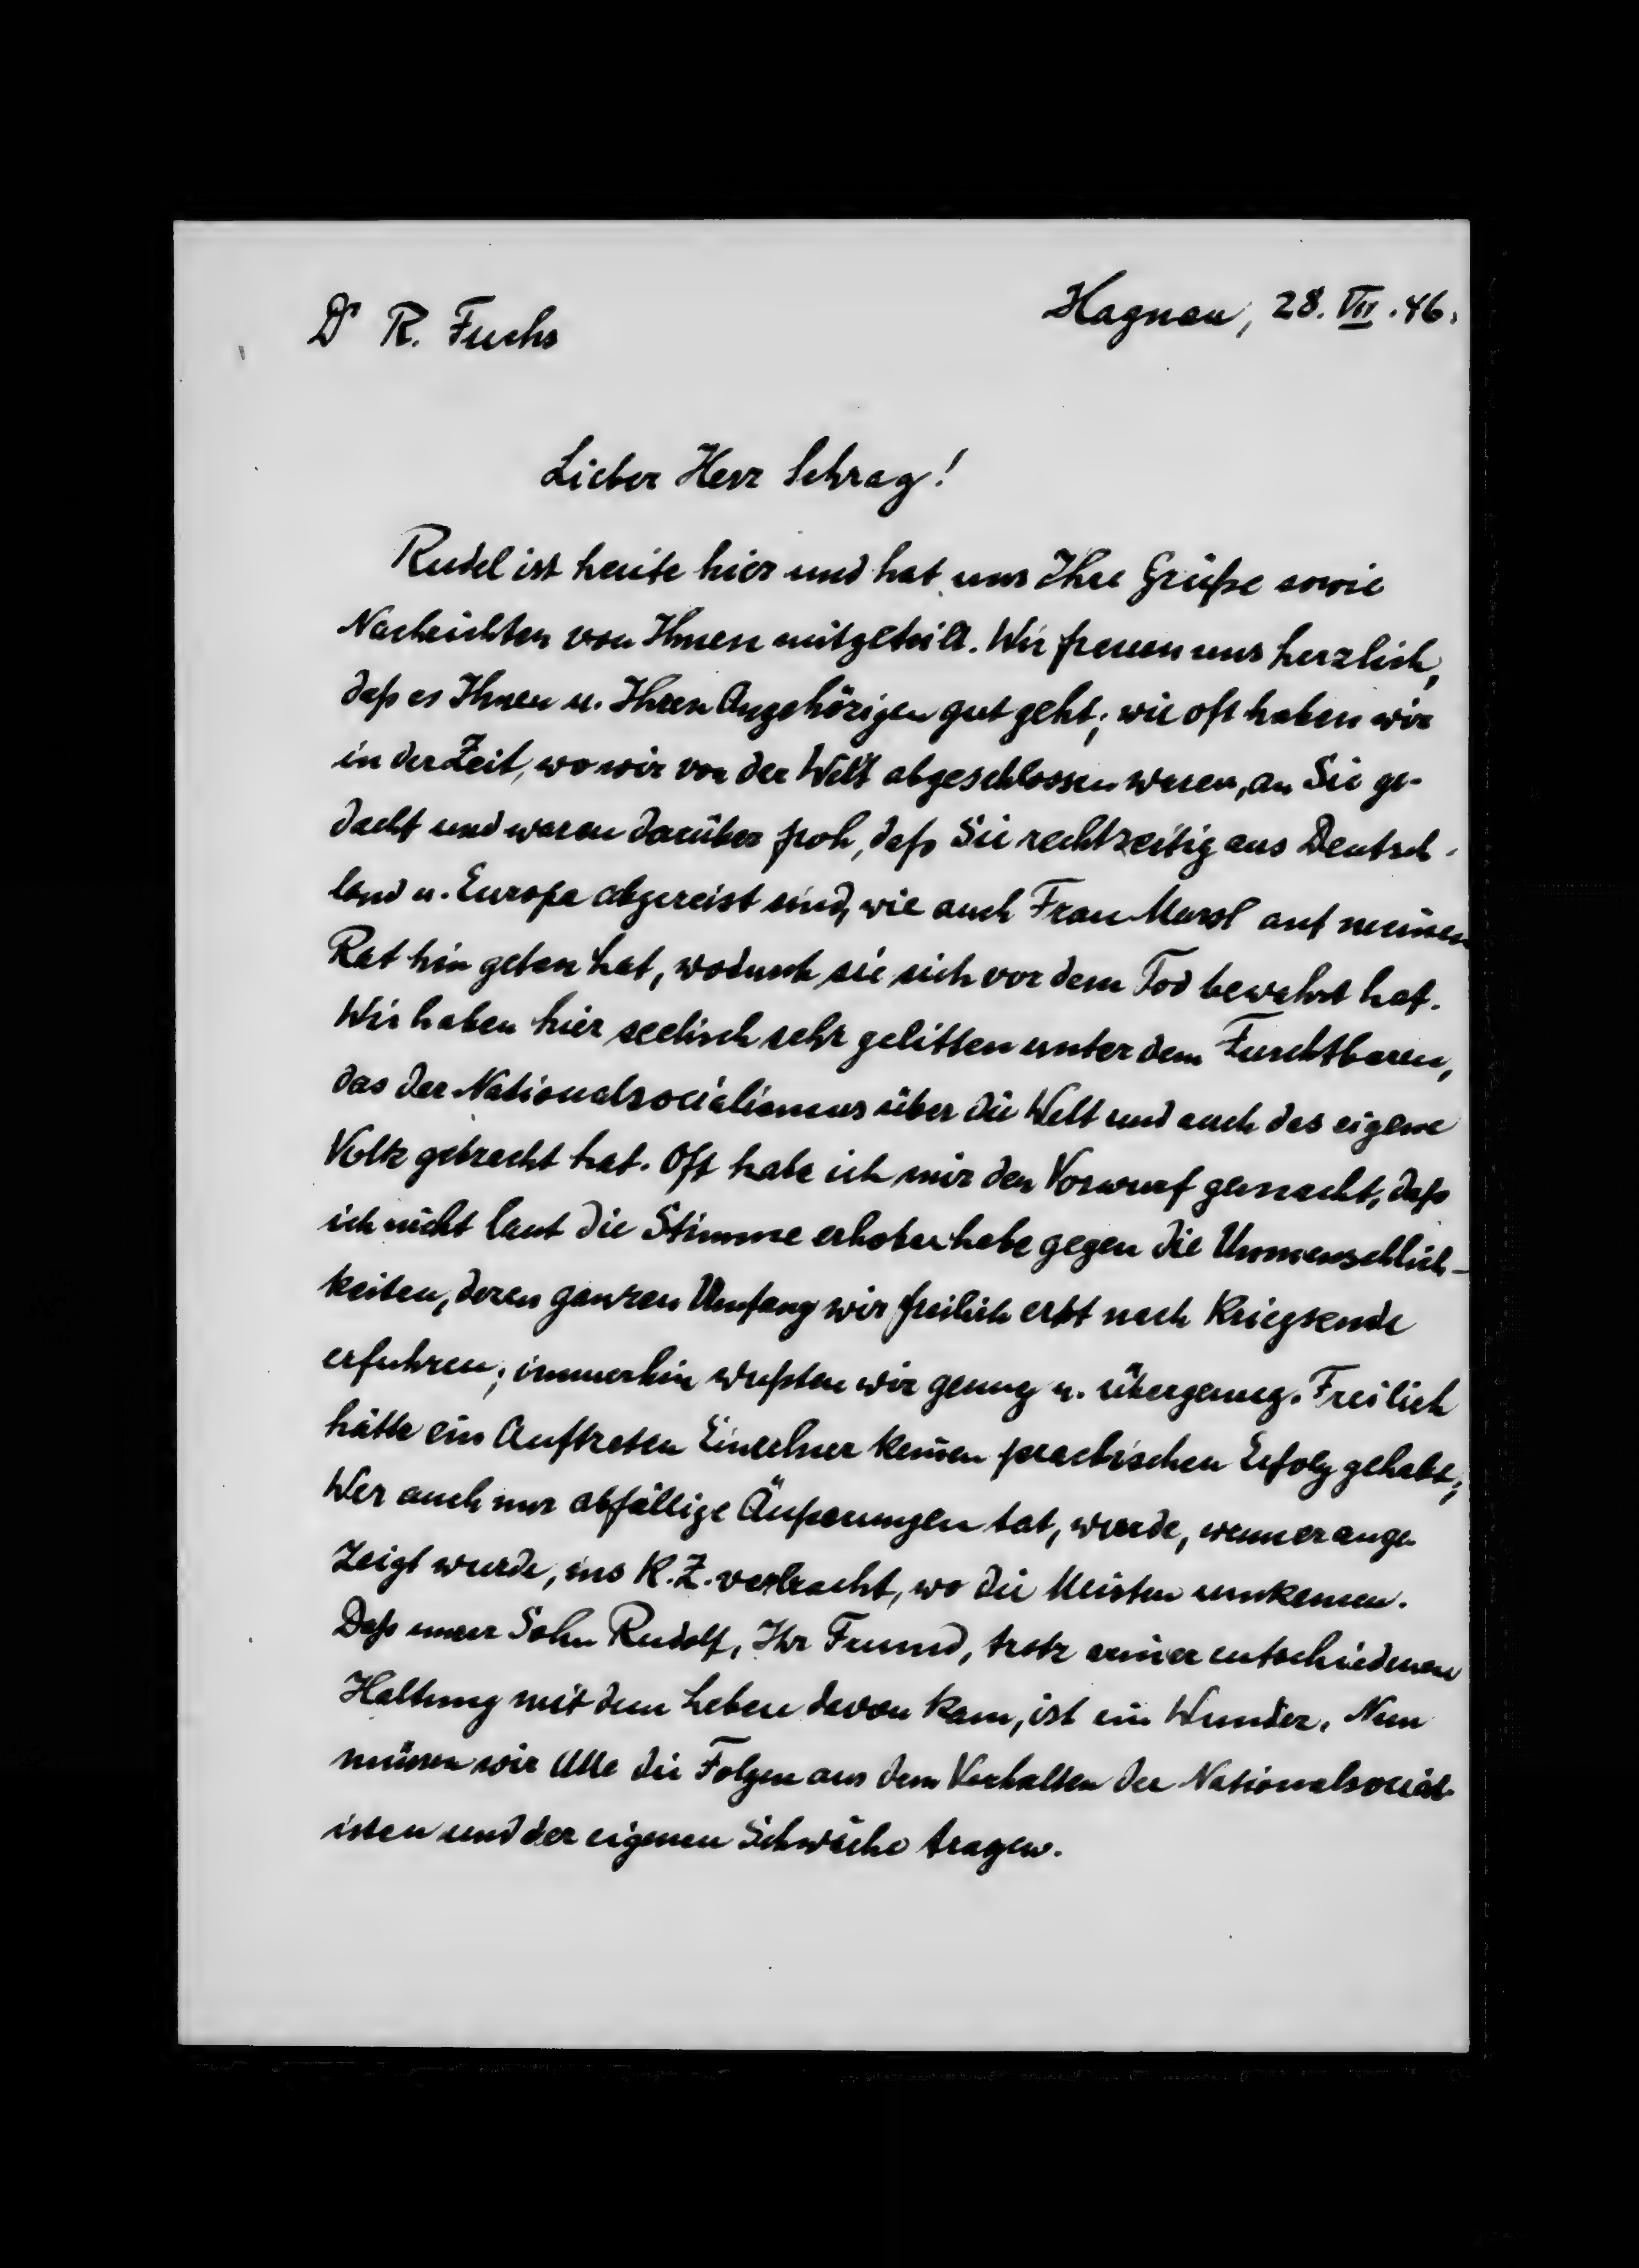 Dr R. Fuchs
Hagnau, 28. VII. 46.
Lieber Herr Schrag!
Rudel ist heute hier und hat uns Ihre Grüße sowie
Nachrichten von Ihnen mitgeteilt. Wir freuen uns herzlich,
daß es Ihnen u. Ihren Angehörigen gut geht; wie oft haben wir
in der Zeit, wo wir von der Welt abgeschlossen waren, an Sie ge-
dacht und waren darüber froh, daß Sie rechtzeitig aus Deutsch-
land u. Europa abgereist sind, wie auch Frau auf meinen
Rat hin getan hat, wodurch sie sich vor dem Tod bewahrt hat.
Wir haben hier seelisch sehr gelitten unter dem Furchtbaren,
das der Nationalsocialismus über die Welt und auch das eigene
Volk gebracht hat. Oft habe ich mir den Vorwurf gemacht, daß
ich nicht laut die Stimme erhoben habe gegen die Unmenschlich-
keiten, deren ganzen Umfang wir freilich erst nach Kriegsende
erfuhren; immerhin wußten wir genug u. übergenug. Freilich
hätte ein Auftreten Einzelner keinen practischen Erfolg gehabt;
Wer auch nur abfällige Äußerungen tat, wurde, wenn er ange-
zeigt wurde, ins K.Z. verbracht, wo die Meisten umkamen.
Daß unser Sohn Rudolf, Ihr Freund, trotz seiner entschiedenen
Haltung mit dem Leben davon kam, ist ein Wunder. Nun
müssen wir Alle die Folgen aus dem Verhalten der Nationalsocial-
isten und der eigenen Schwäche tragen.